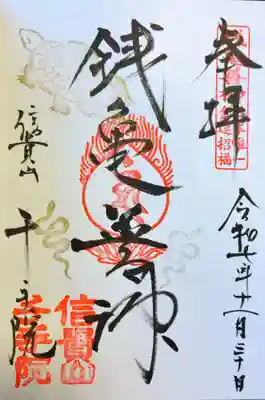 奉拝
令和七年十一月三十日
銭亀善神
信貴山
千手院
招福
信貴山
千手院